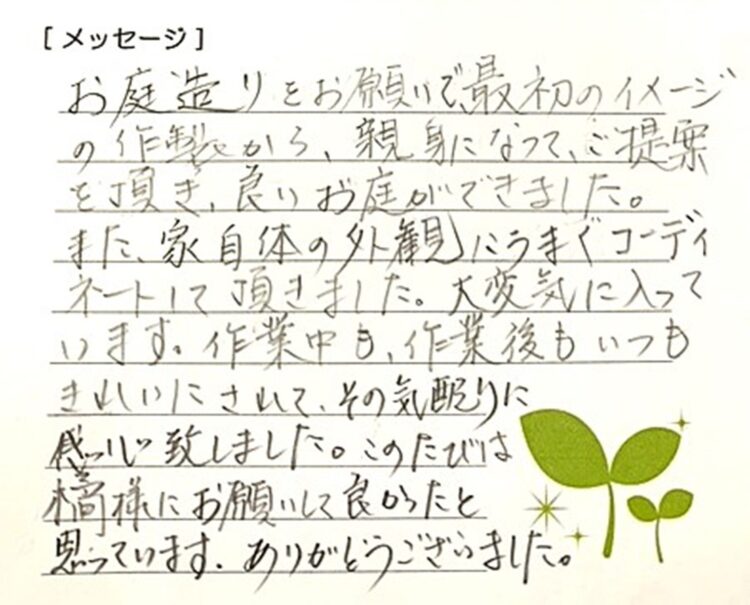 [ メッセージ ]
お庭造りをお願いで、最初のイメージ
の作製から、親身になって、ご提案
を頂き、良いお庭ができました。
また、家自体の外観にうまくコーディ
ネートして頂きました。大変気に入って
います。作業中も、作業後もいつも
きれいにされて、その気配りに
感心致しました。このたびは
橘様にお願いして良かったと
思っています。ありがとうございました。